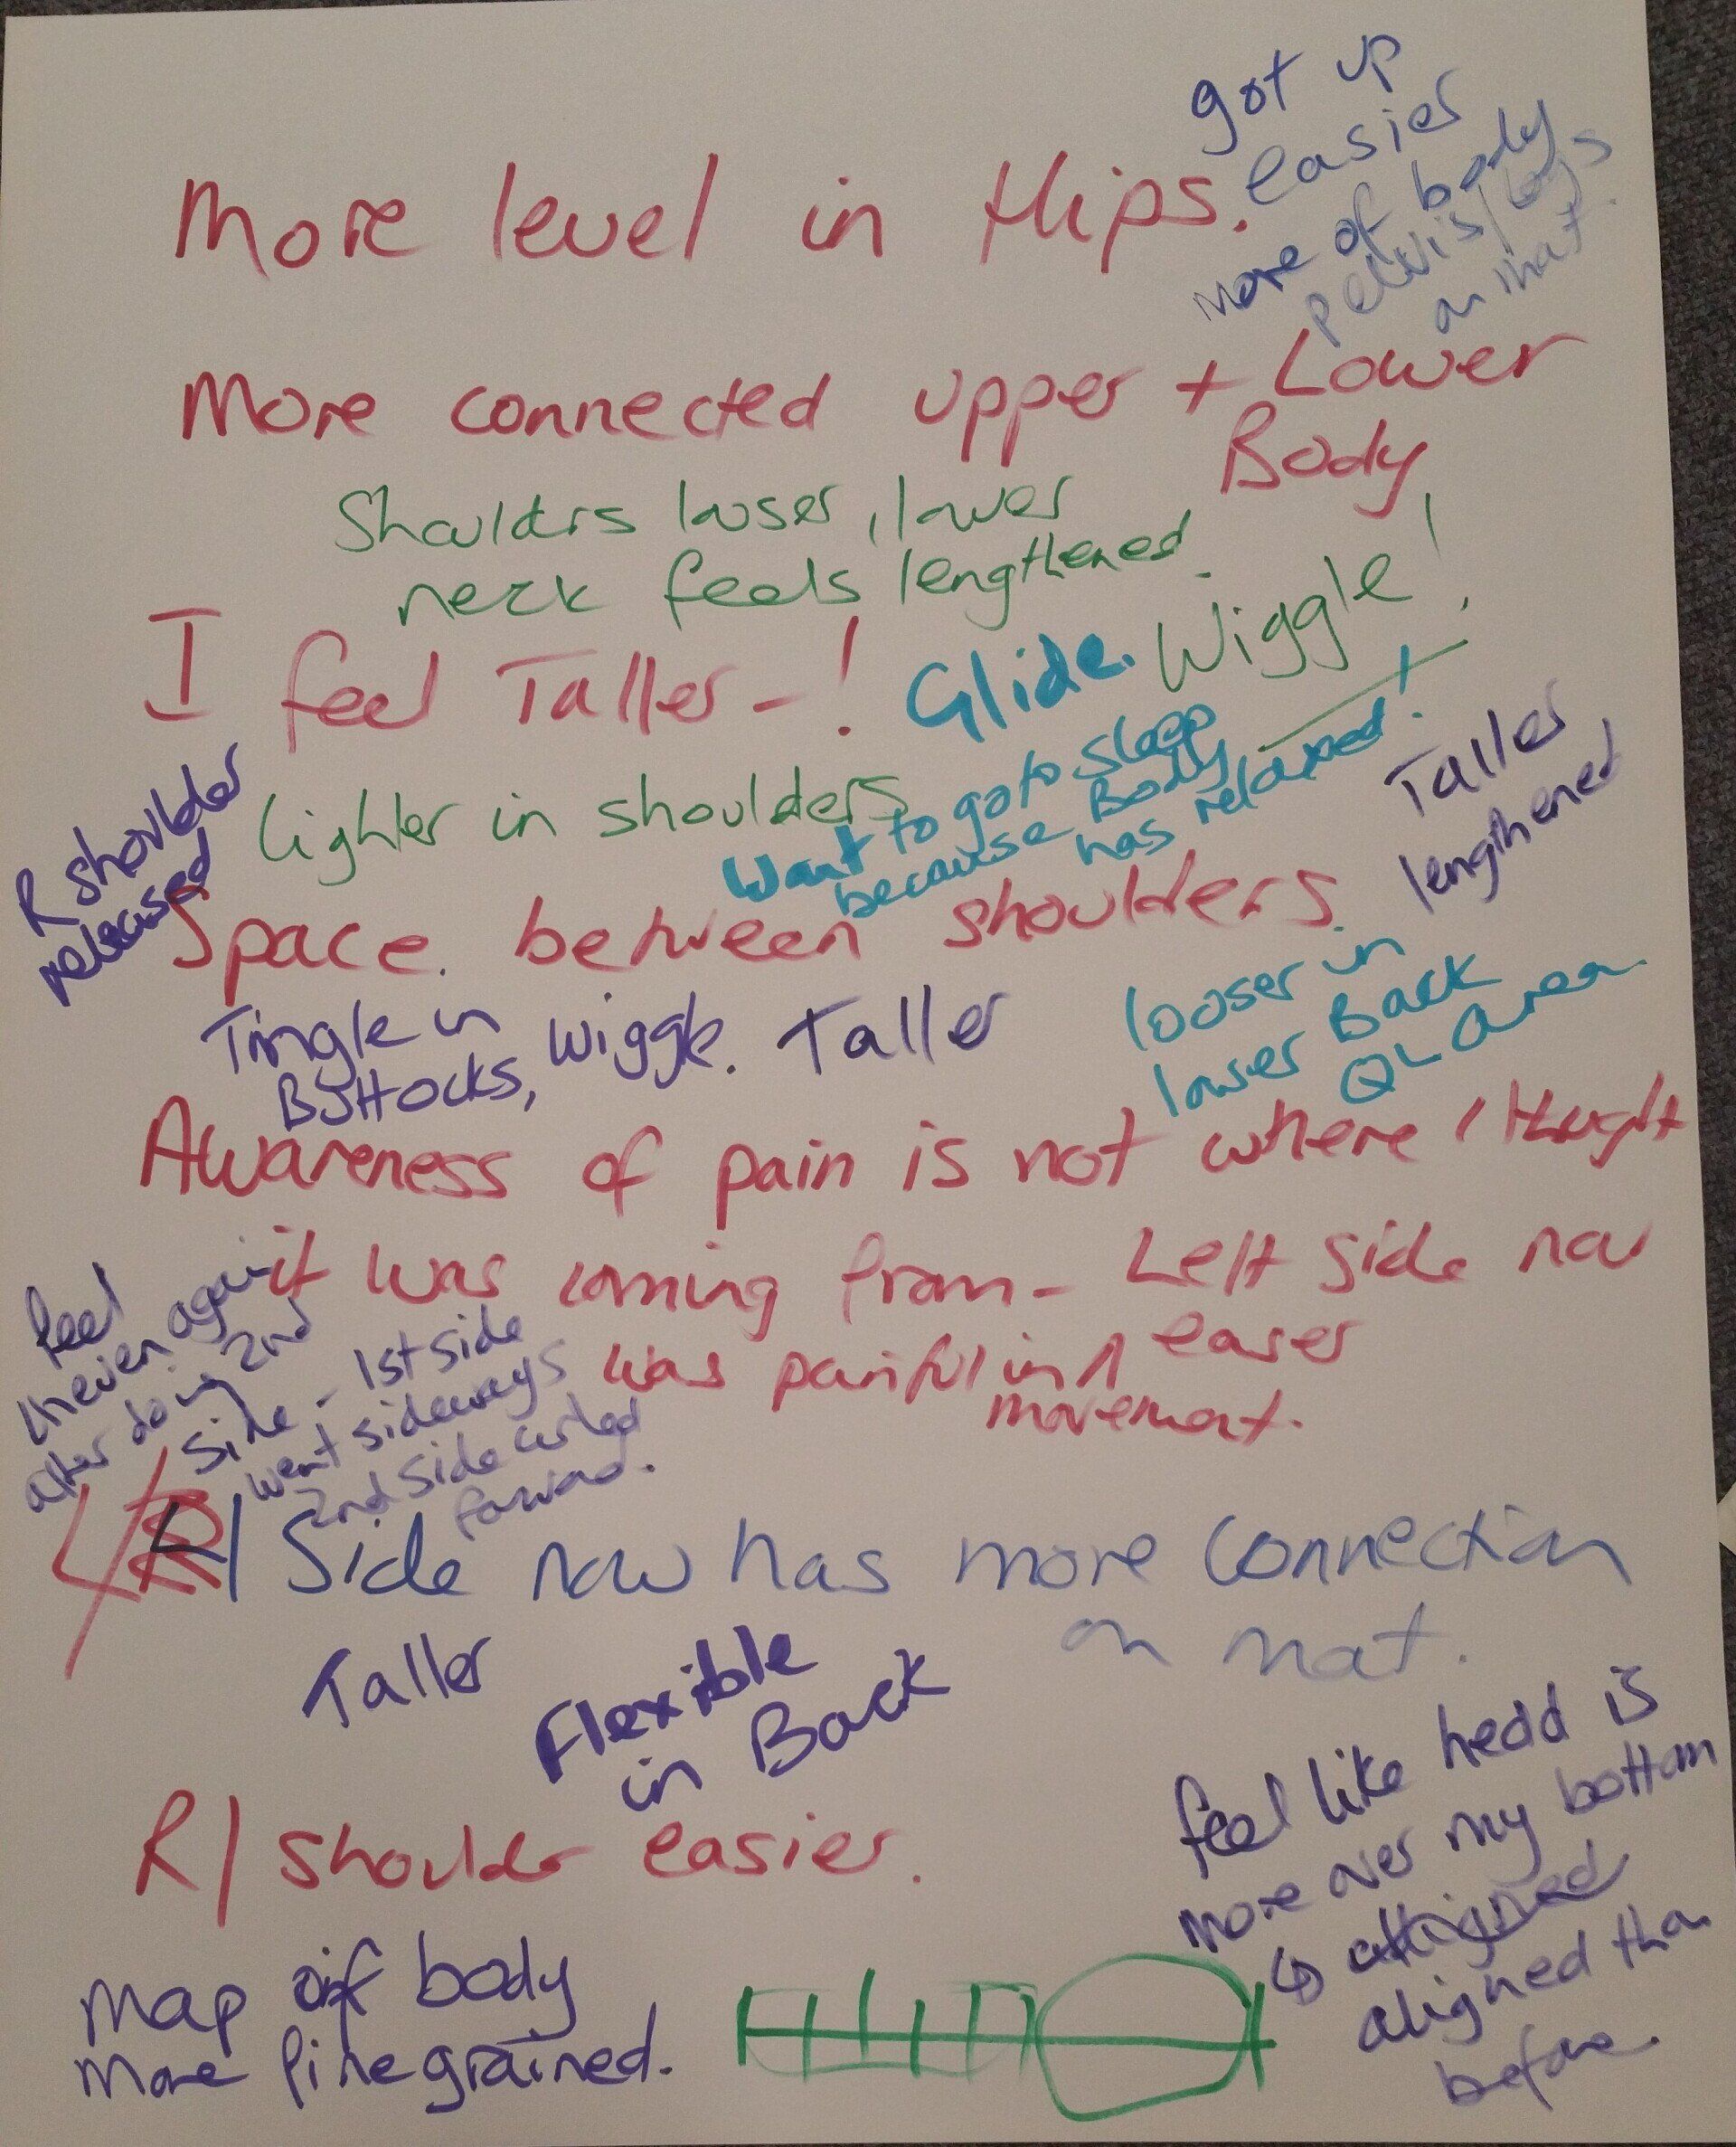 got up
easier
more of body
pelvis/legs
on mat.
More level in Hips.
More connected upper + Lower
Body
Shoulders looser, lower
neck feels lengthened.
I feel Taller - !
Glide.
Wiggle!
Want to go to sleep
because Body
has relaxed!
Taller
lengthened
R shoulder
released
lighter in shoulders
Space. between shoulders.
Tingle in
Buttocks, wiggle. Taller
looser in
lower Back
QL Area.
Awareness of pain is not where I thought
it was coming from - Left side now
was painful in easer
movement.
feel
uneven again
after doing 2nd
side - 1st side
went sideways
2nd side curled
forward.
L/ Side now has more connection
on mat.
Taller
Flexible
in Back
R/ shoulder easier.
feel like head is
more over my bottom
aligned than
before.
Map of body
more fine grained.